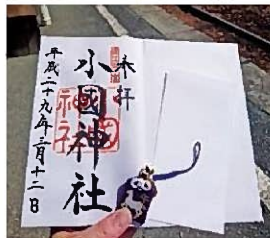 奉拝
小國神社
平成二十九年三月十二日